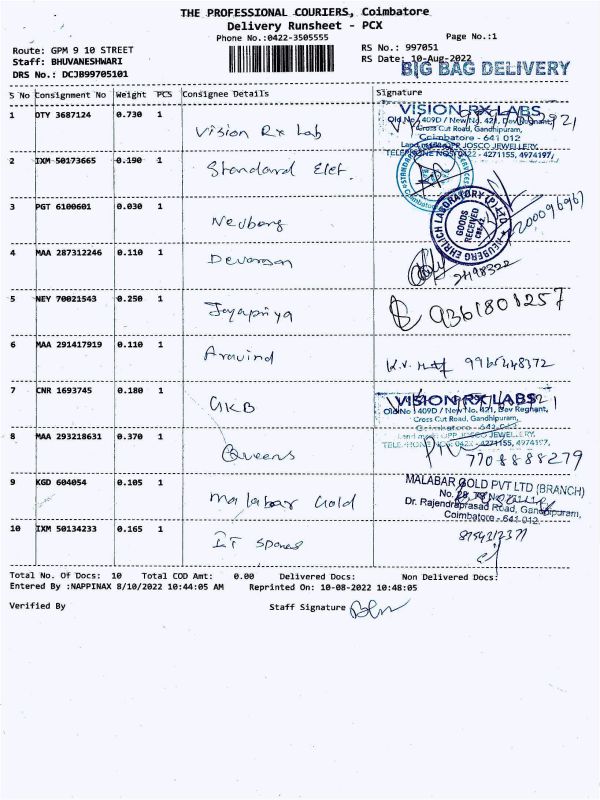 THE PROFESSIONAL COURIERS, Coimbatore
Delivery Runsheet - PCX
Phone No.:0422-3505555
Page No.:1
Route: GPM 9 10 STREET
RS No.: 997051
Staff: BHUVANESHWARI
RS Date: 10-Aug-2022
DRS No.: DCJB99705101
BIG BAG DELIVERY
S No Consignment No Weight PCS Consignee Details Signature
1 DTY 3687124 0.730 1 Vision Rx Lab
VISION RX LABS
Old No 409D / New No. 421, Dev Reghant,
Cross Cut Road, Gandhipuram,
Coimbatore - 641 012
Land mark OPP JOSCO JEWELLERY
TELEPHONE NOS: 0422 - 4271155, 4974197,
2 IXM 50173665 0.190 1 Standard Elet.
3 PGT 6100601 0.030 1 Neuberg
NEUBERG EHRLICH LABORATORY (P) LTD
GOODS RECEIVED
4 MAA 287312246 0.110 1 Devarson
5 NEY 70021543 0.250 1 Jayapriya
9361801257
6 MAA 291417919 0.110 1 Aravind
9965448372
7 CNR 1693745 0.180 1 GKB
VISION RX LABS
Old No 409D / New No. 421, Dev Reghant,
Cross Cut Road, Gandhipuram,
Coimbatore - 641 012
Land mark OPP JOSCO JEWELLERY,
TELEPHONE NOS: 0422 - 4271155, 4974197,
8 MAA 293218631 0.370 1 Queens
7708888279
9 KGD 604054 0.105 1 Malabar Gold
MALABAR GOLD PVT LTD (BRANCH)
Dr. Rajendraprasad Road, Gandhipuram,
Coimbatore - 641 012
10 IXM 50134233 0.165 1 IT Spares
Total No. Of Docs: 10 Total COD Amt: 0.00 Delivered Docs: Non Delivered Docs:
Entered By :NAPPINAX 8/10/2022 10:44:05 AM Reprinted On: 10-08-2022 10:48:05
Verified By Staff Signature